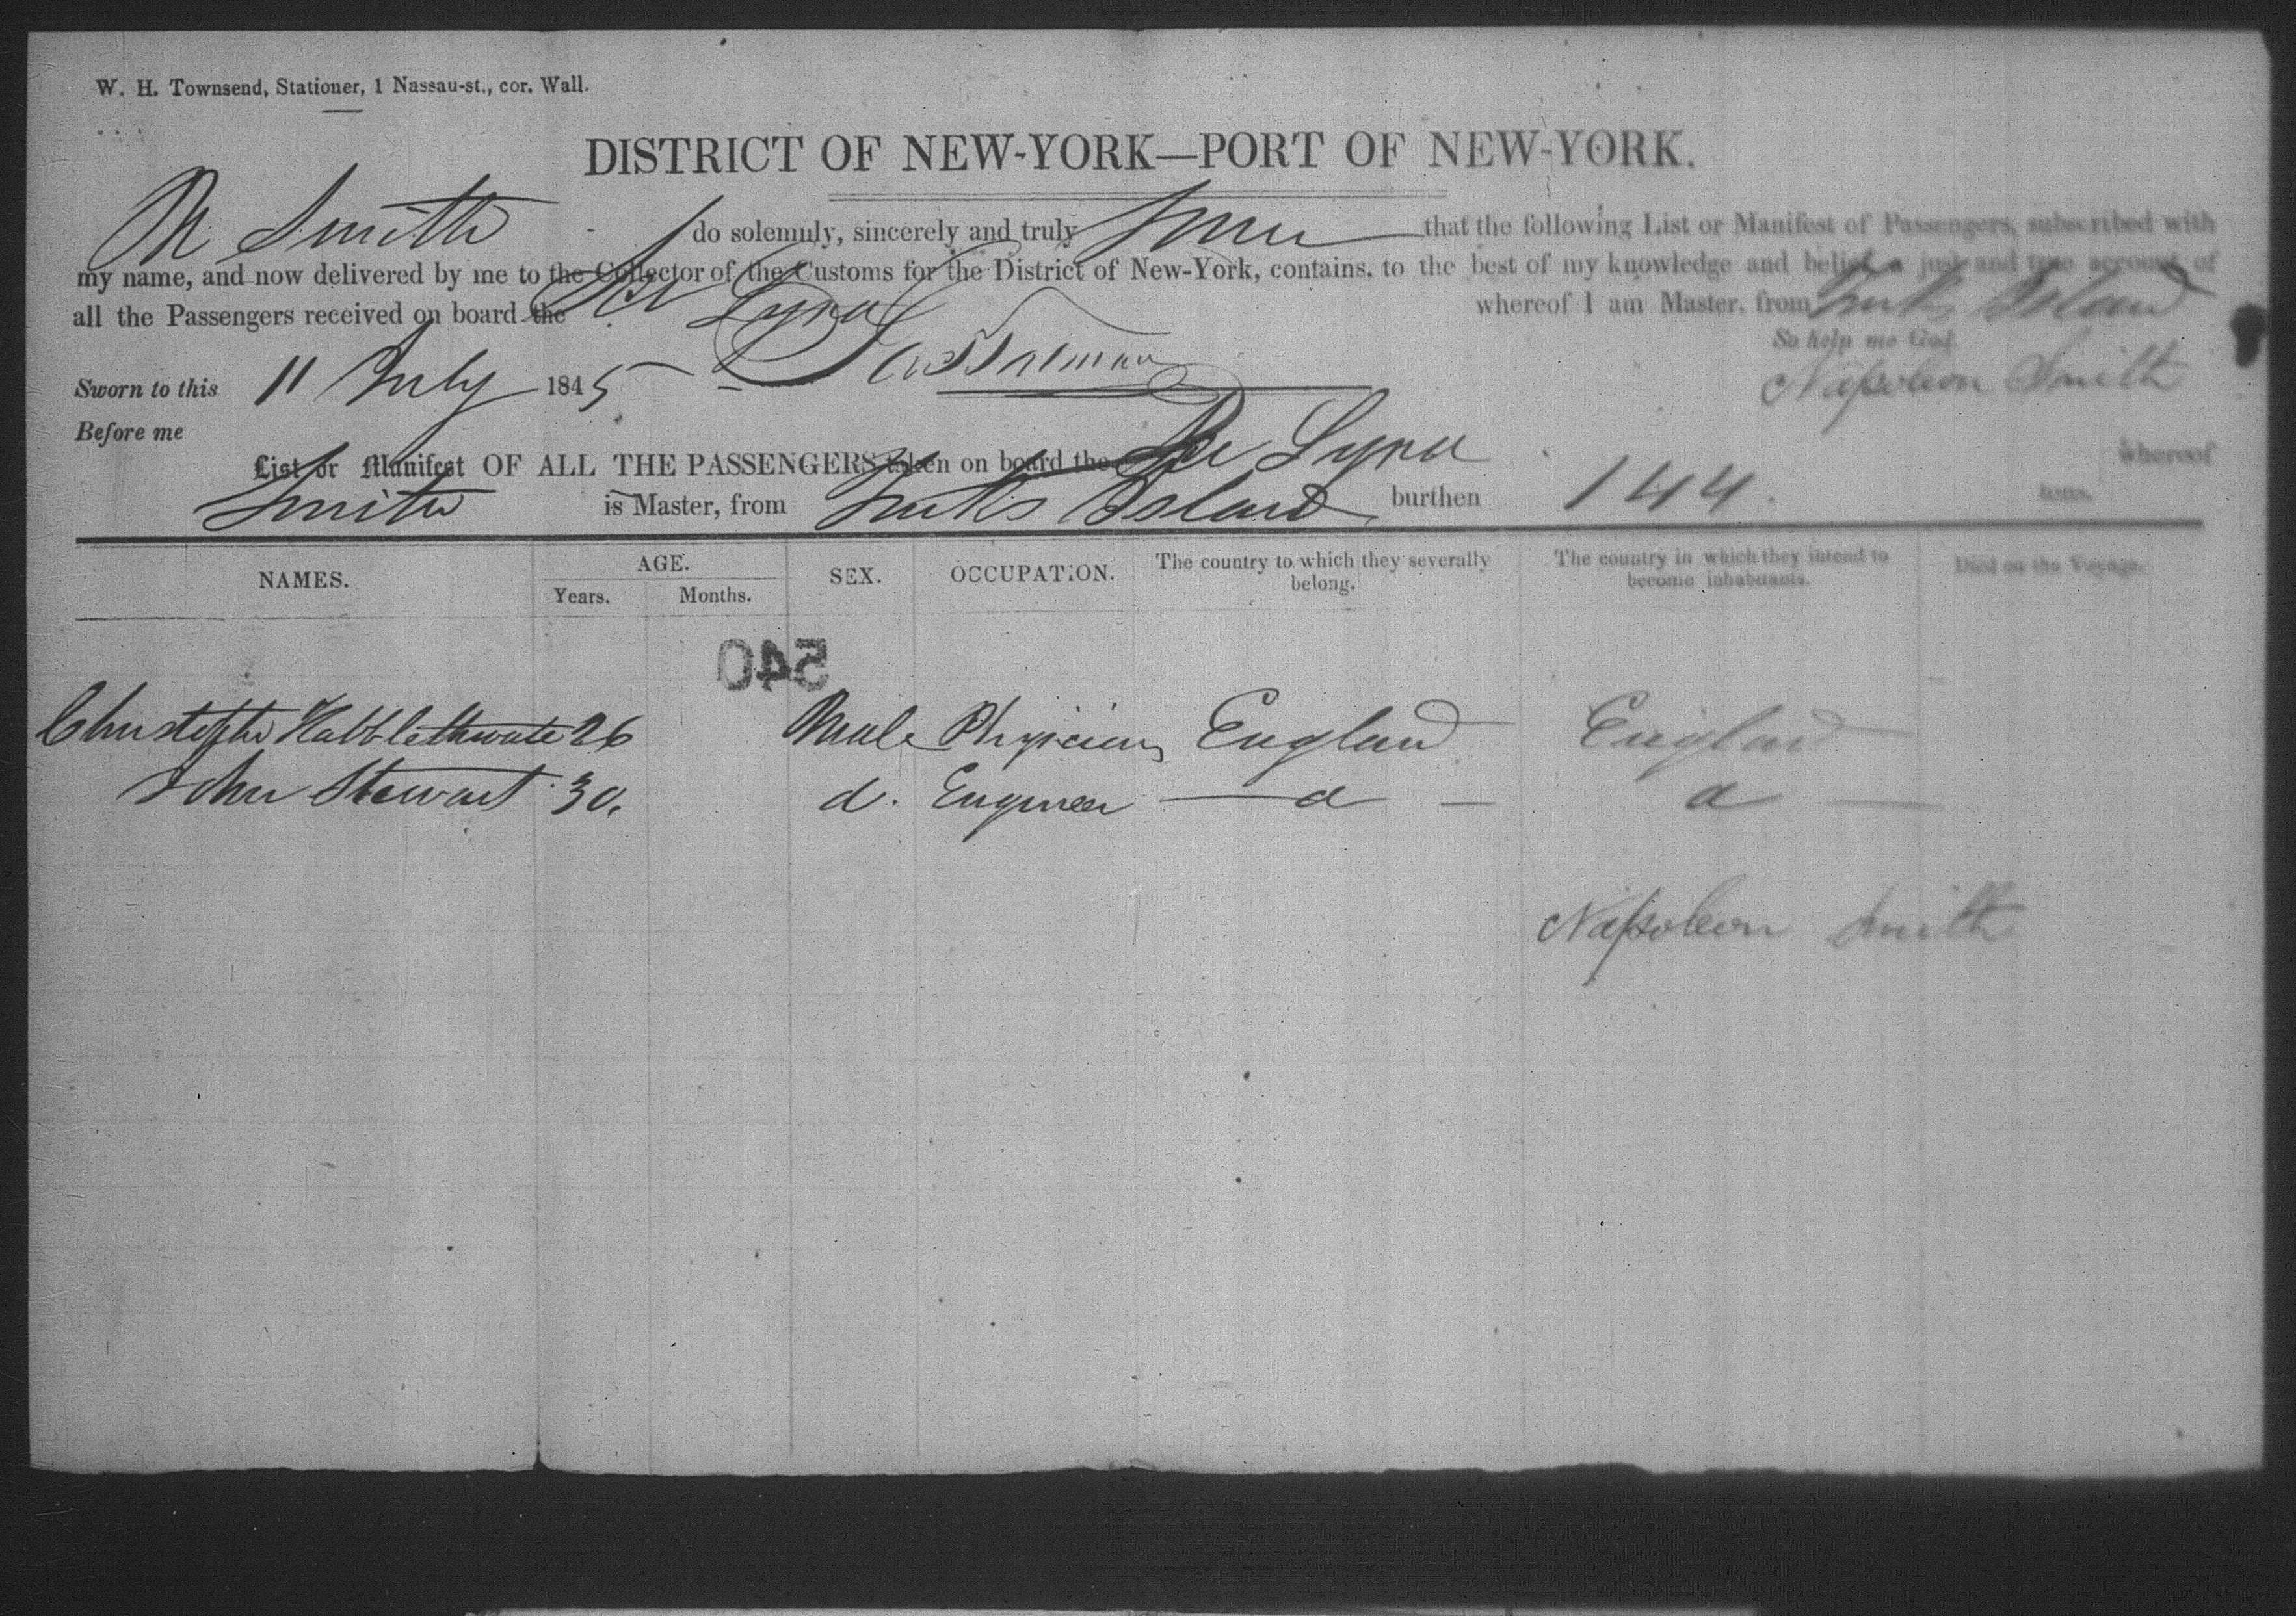 W. H. Townsend, Stationer, 1 Nassau-st., cor. Wall.
DISTRICT OF NEW-YORK—PORT OF NEW-YORK.
N Smith do solemnly, sincerely and truly swear that the following List or Manifest of Passengers, subscribed with
my name, and now delivered by me to the Collector of the Customs for the District of New-York, contains, to the best of my knowledge and belief a just and true account of
all the Passengers received on board the Lyra whereof I am Master, from Turks Island
So help me God.
Sworn to this 11 July 1845 Napoleon Smith
Before me
List or Manifest OF ALL THE PASSENGERS taken on board the Lyra whereof
Smith is Master, from Turks Island burthen 144. tons.
NAMES. AGE. SEX. OCCUPATION. The country to which they severally belong. The country in which they intend to become inhabitants. Died on the Voyage.
Years. Months.
540
Christopher Habblethwaite 26 Male Physician England England
John Stewart 30. d. Engineer d d
Napoleon Smith